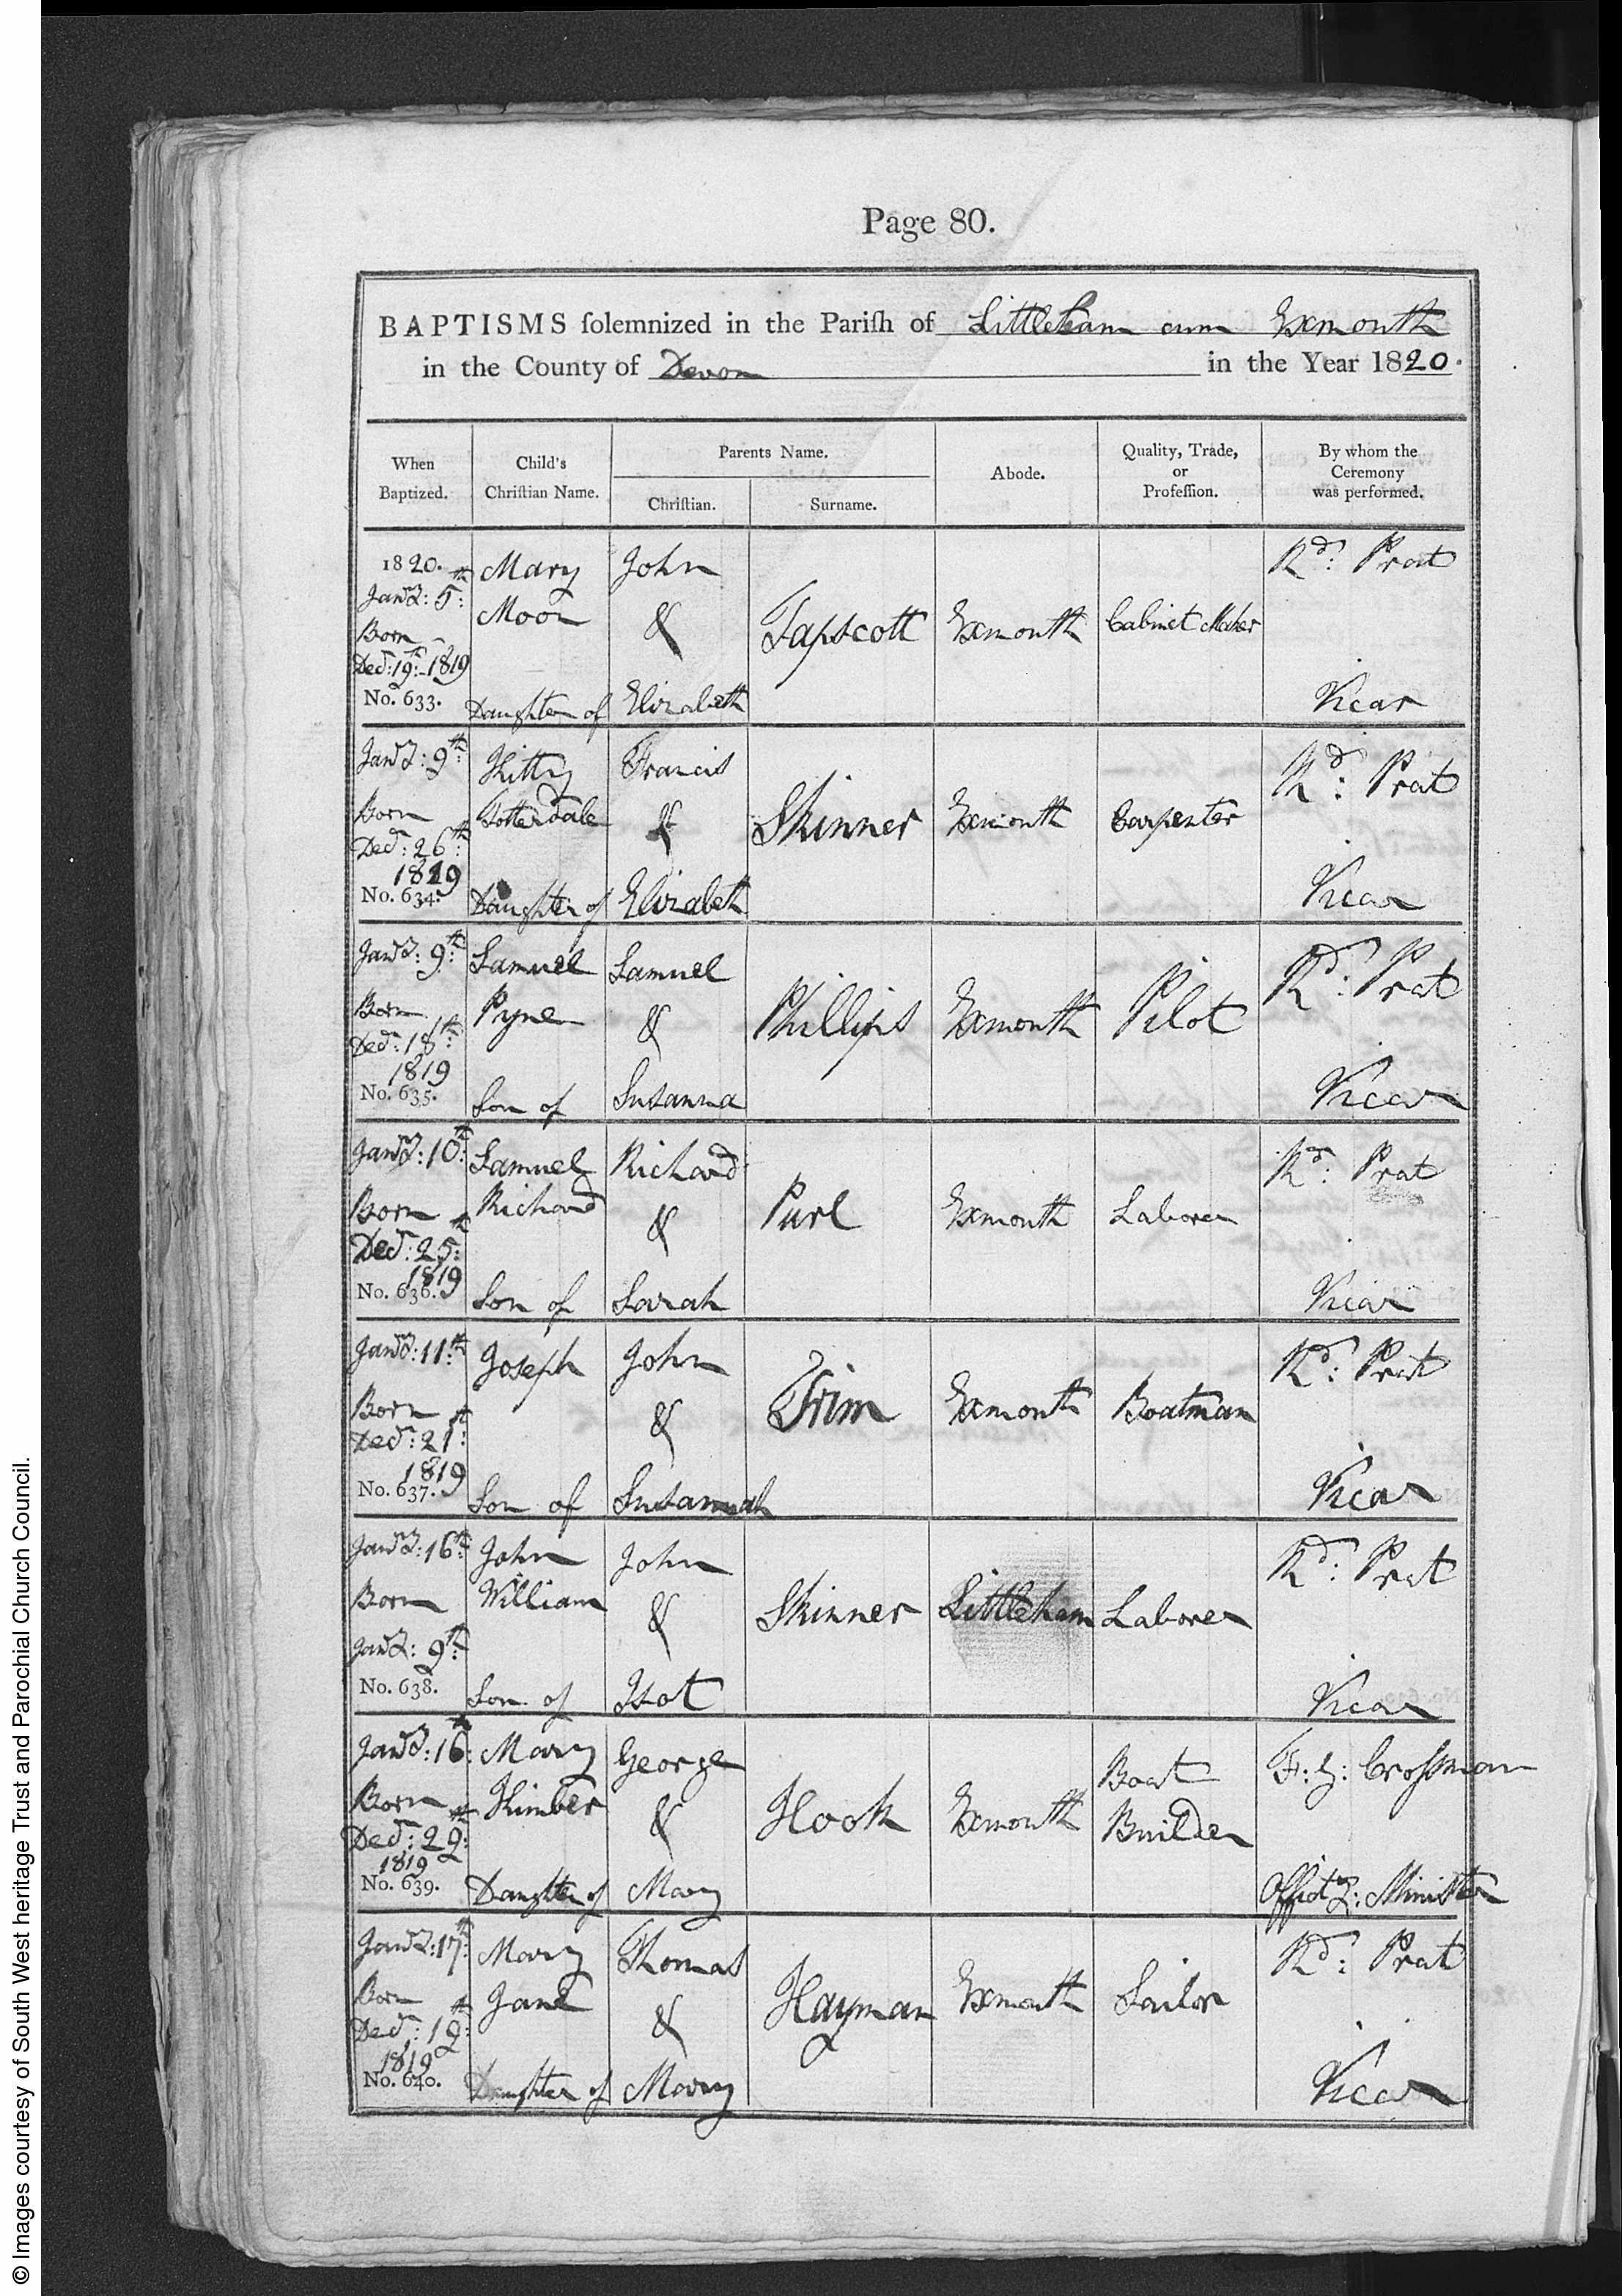 Page 80.
BAPTISMS solemnized in the Parish of Littleham cum Exmouth
in the County of Devon in the Year 1820.
When Baptized.
Child's Christian Name.
Parents Name.
Christian.
Surname.
Abode.
Quality, Trade, or Profession.
By whom the Ceremony was performed.
1820.
Janry: 5th:
Born
Decr: 19th: 1819
No. 633.
Mary
Moor
Daughter of
John
&
Elizabeth
Tapscott
Exmouth
Cabinet Maker
Rd: Prat
Vicar
Janry: 9th:
Born
Decr: 26th:
1819
No. 634.
Kitty
Daughter of
Francis
&
Elizabeth
Skinner
Exmouth
Carpenter
Rd: Prat
Vicar
Janry: 9th:
Born
Decr: 18th:
1819
No. 635.
Samuel
Pyne
Son of
Samuel
&
Susanna
Phillips
Exmouth
Pilot
Rd: Prat
Vicar
Janry: 10th:
Born
Decr: 25th:
1819
No. 636.
Samuel
Richard
Son of
Richard
&
Sarah
Purl
Exmouth
Laborer
Rd: Prat
Vicar
Janry: 11th:
Born
Decr: 21st:
1819
No. 637.
Joseph
Son of
John
&
Susannah
Trim
Exmouth
Boatman
Rd: Prat
Vicar
Janry: 16th:
Born
Janry: 9th:
No. 638.
John
William
Son of
John
&
Isot
Skinner
Littleham
Laborer
Rd: Prat
Vicar
Janry: 16th:
Born
Decr: 29th:
1819
No. 639.
Mary
Kimber
Daughter of
George
&
Mary
Hook
Exmouth
Boat
Builder
Crossman
Minister
Janry: 17th:
Born
Decr: 19th:
1819
No. 640.
Mary
Jane
Daughter of
Thomas
&
Mary
Hayman
Exmouth
Sailor
Rd: Prat
Vicar
© Images courtesy of South West heritage Trust and Parochial Church Council.